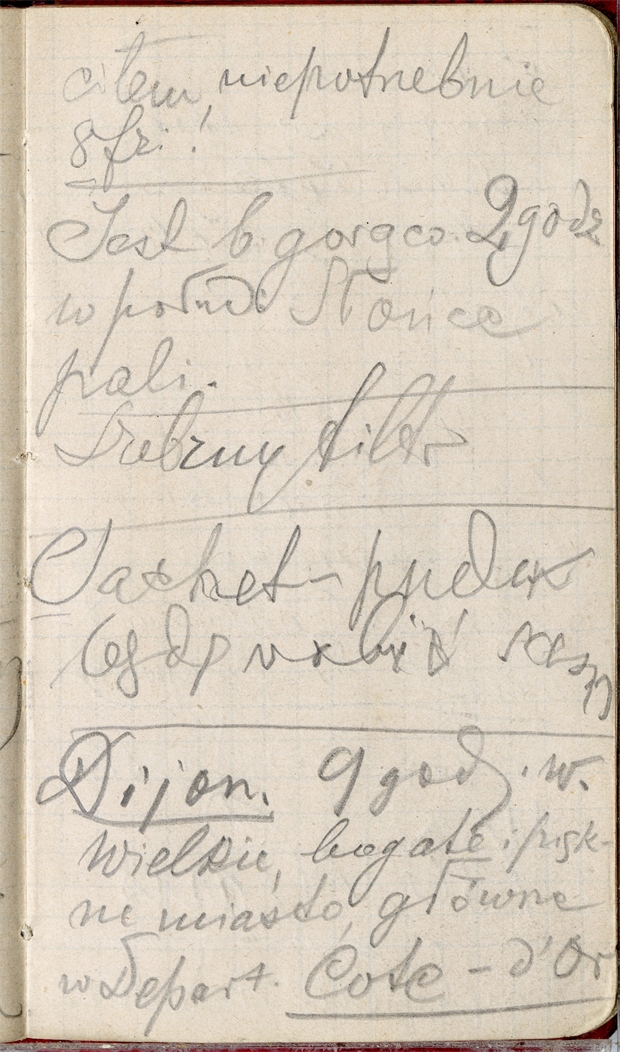 ciłem, niepotrzebnie
8 fr. !
Jest b gorąco. 2 godz
w połud. Słońce
pali.
Srebrny filtr
Sachet - puder
Dijon. 9 godz. w.
Wielkie, bogate i pięk-
ne miasto, główne
w Depart. Cote - d'Or